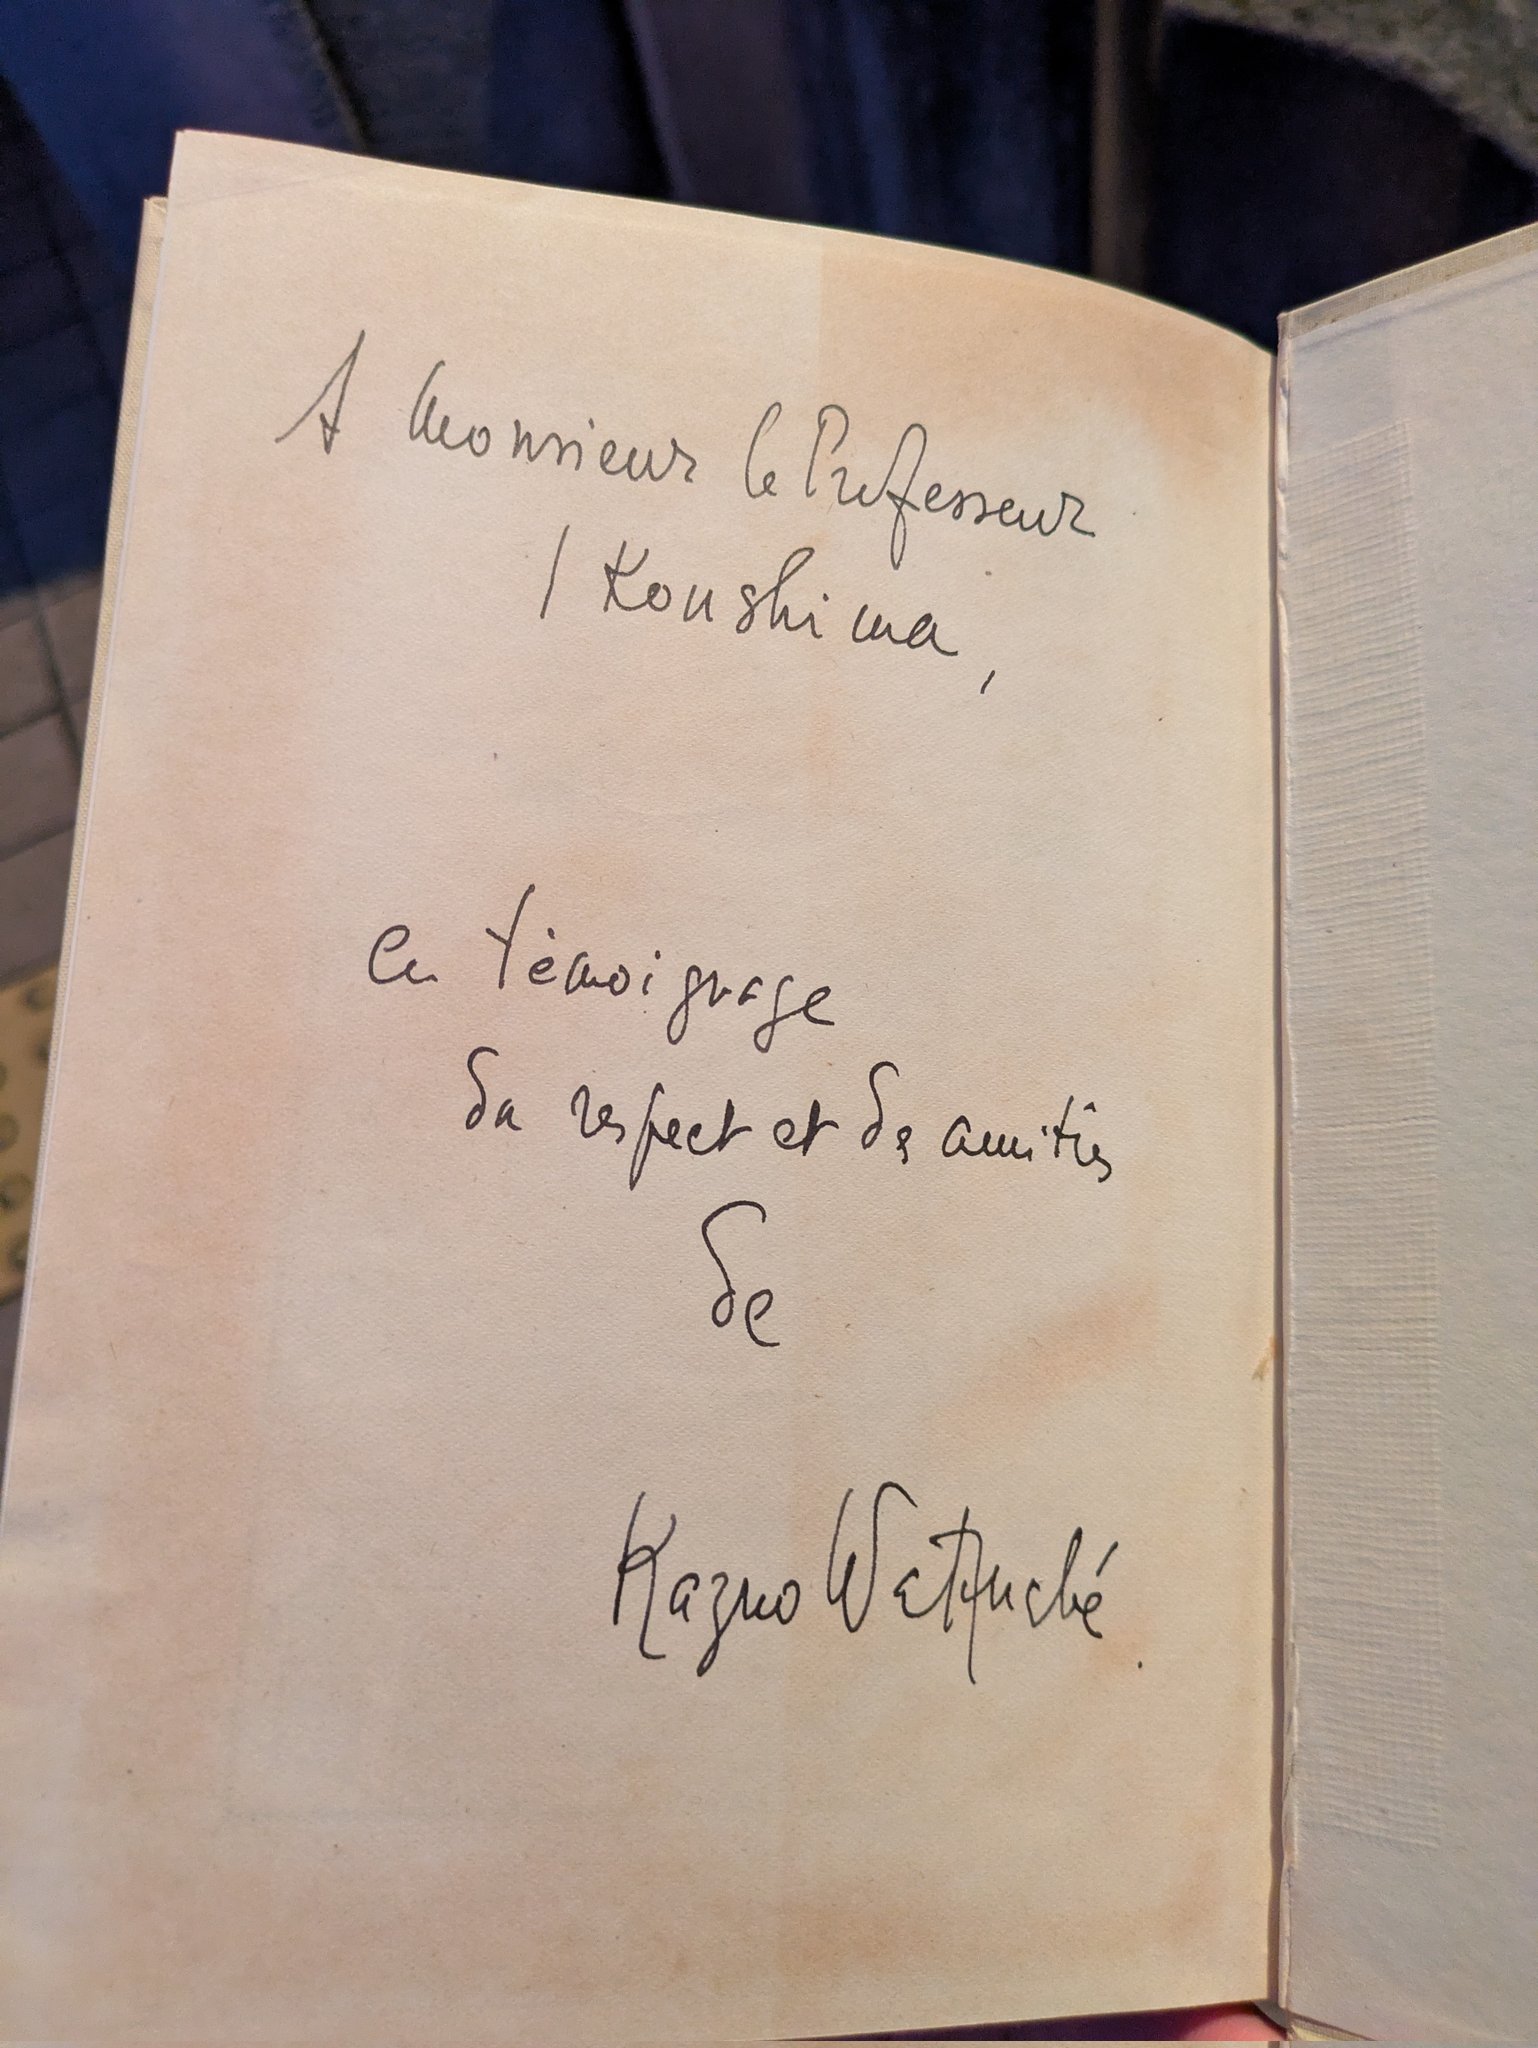 A Monsieur le Professeur
I Koushima,
en témoignage
du respect et de amitiés
de
Kazuo Watanabé